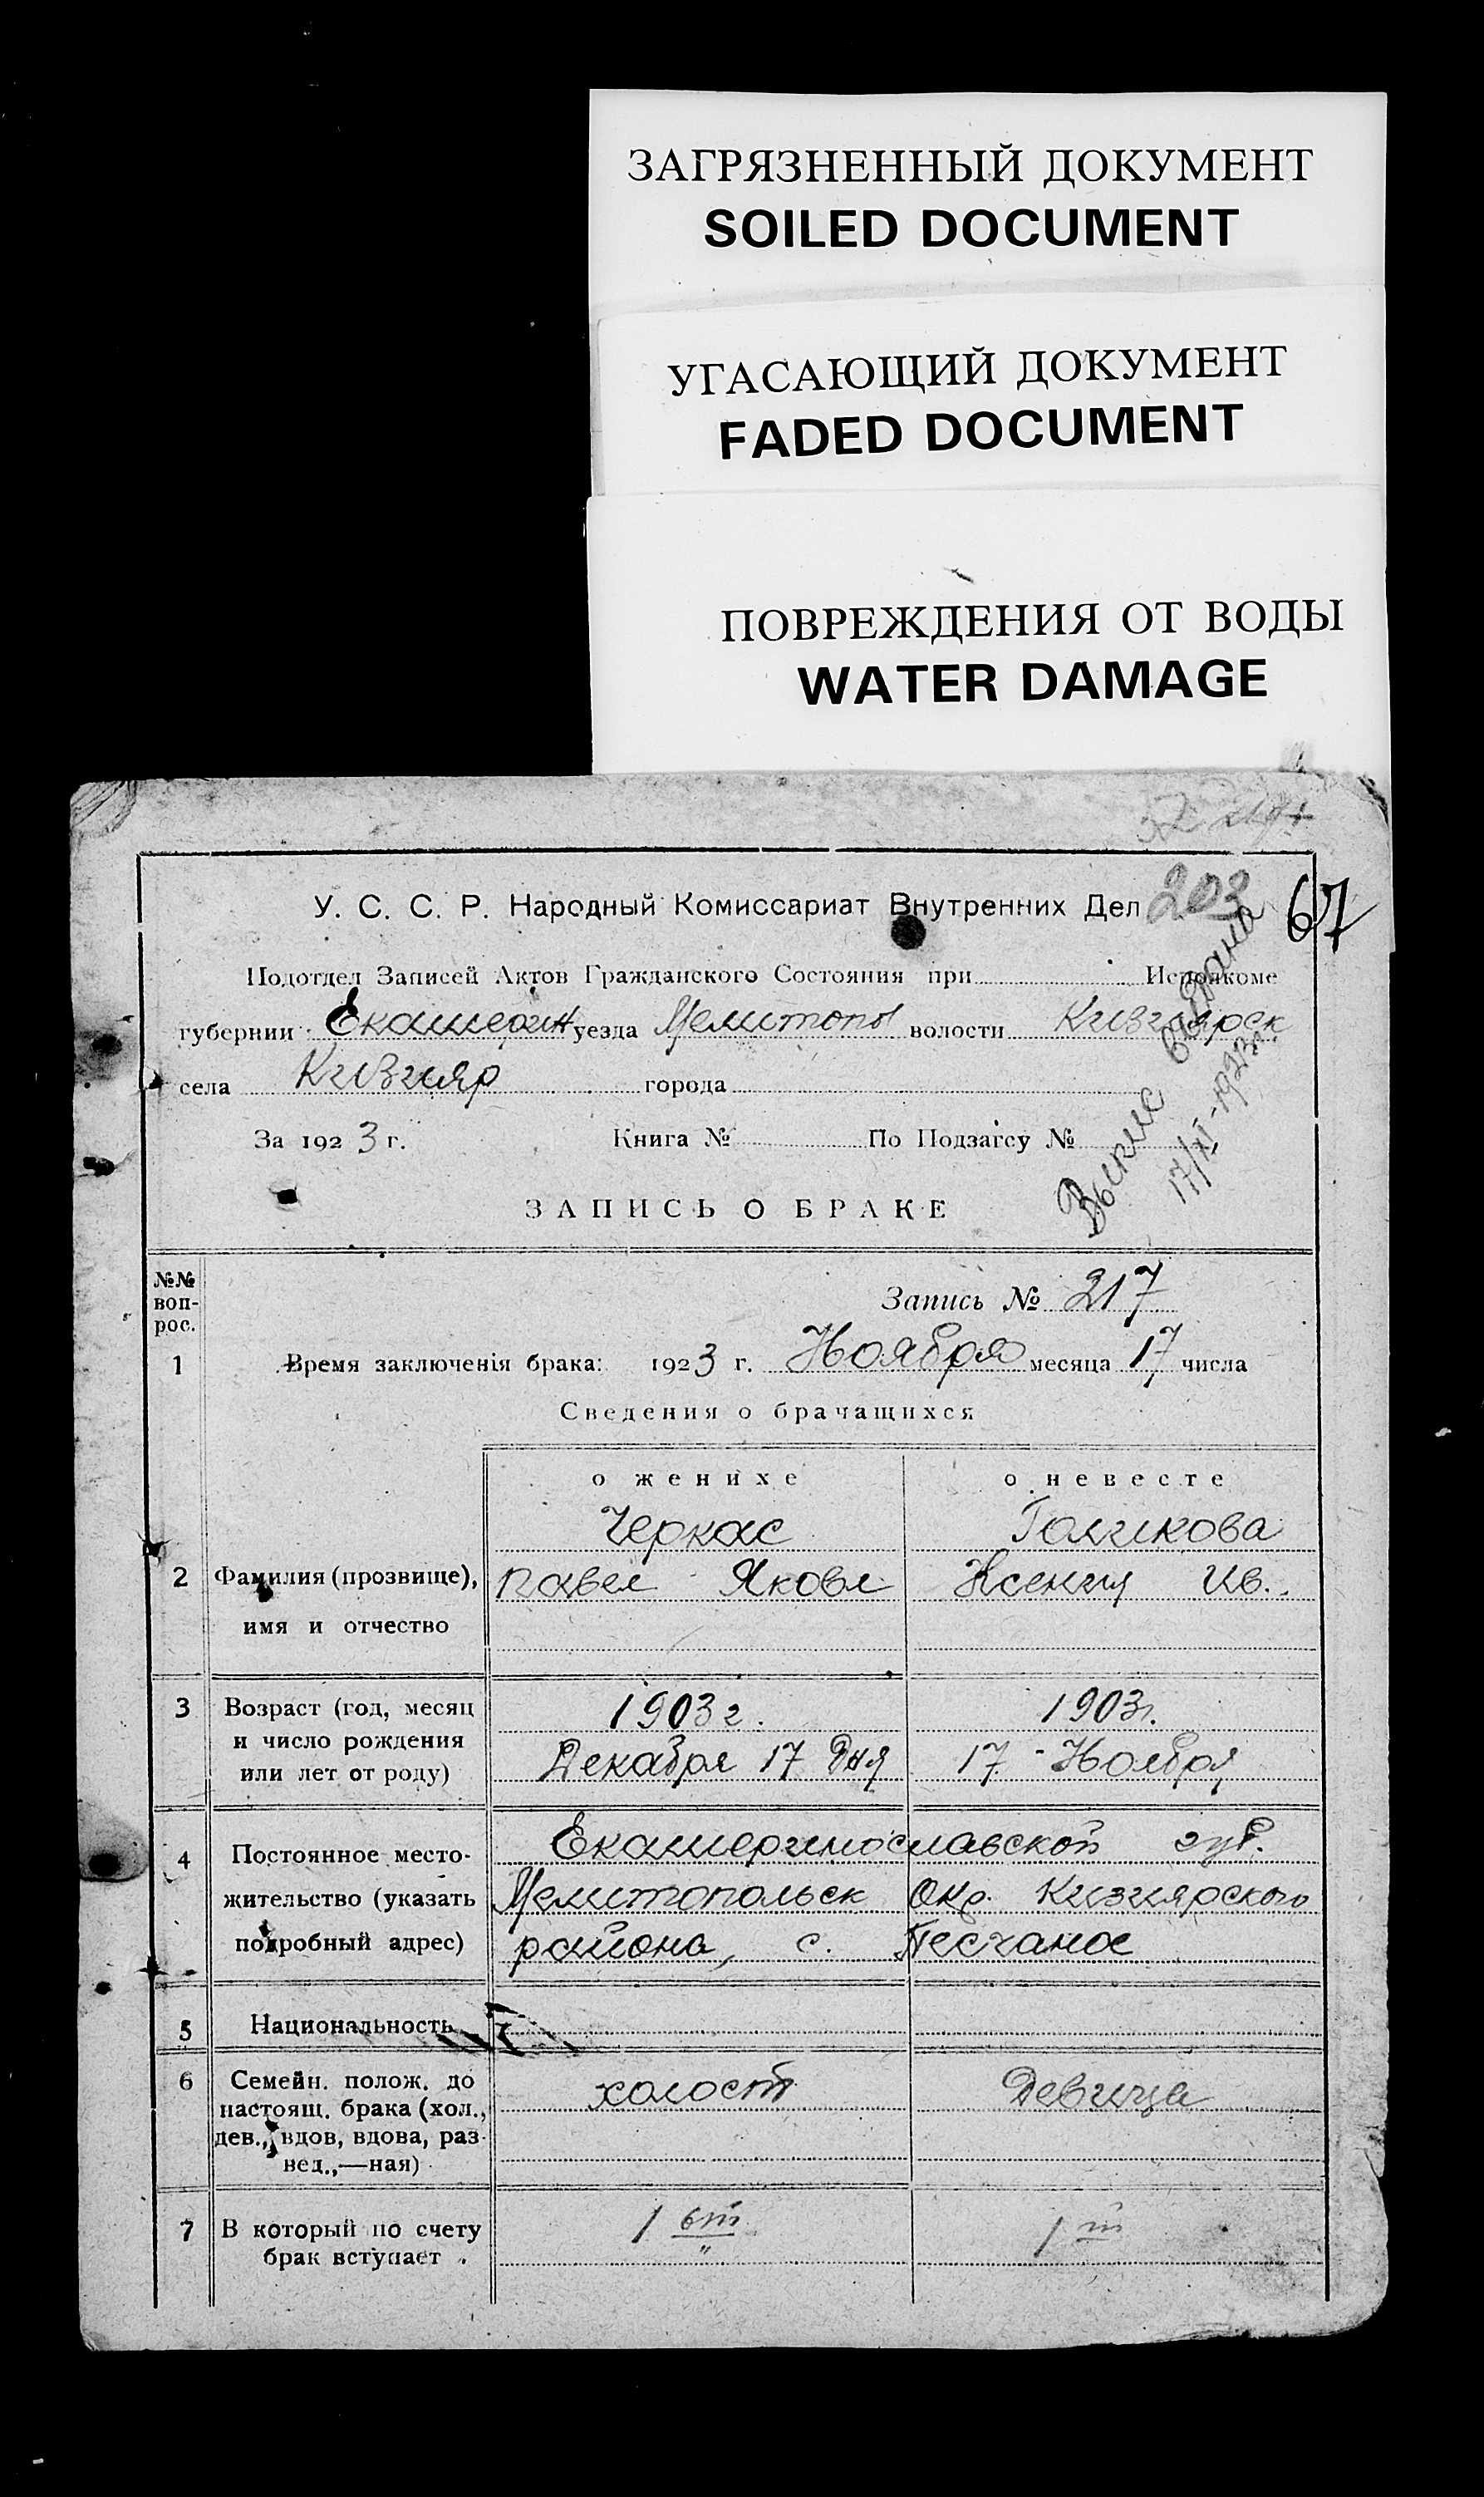 ЗАГРЯЗНЕННЫЙ ДОКУМЕНТ
SOILED DOCUMENT
УГАСАЮЩИЙ ДОКУМЕНТ
FADED DOCUMENT
ПОВРЕЖДЕНИЯ ОТ ВОДЫ
WATER DAMAGE
203
67
У. С. С. Р. Народный Комиссариат Внутренних Дел
Подотдел Записей Актов Гражданского Состояния при Исполкоме
губернии Екатерин уезда Мелитопол волости Кизиярск
села Кизияр города
За 1923 г. Книга № По Подзагсу №
Выпис выдана
17/XI-1923г.
ЗАПИСЬ О БРАКЕ
№№ воп-рос.
Запись № 217
1 Время заключенія брака: 1923 г. Ноября месяца 17 числа
Сведения о брачащихся
о женихе о невесте
Черкас Голикова
2 Фамилия (прозвище), Павел Яковл Ксения Ив.
имя и отчество
3 Возраст (год, месяц 1903 г. 1903г.
и число рождения
или лет от роду) Декабря 17 дня 17 - Ноября
4 Постоянное место- Екатеринославской губ.
жительство (указать Мелитопольск Окр. Кизиярского
подробный адрес) района, с. Песчаное
5 Национальность
6 Семейн. полож. до холост Девица
настоящ. брака (хол.,
дев., вдов, вдова, раз-
вед.,—ная)
7 В который по счету 1 ый 1 й
брак вступает